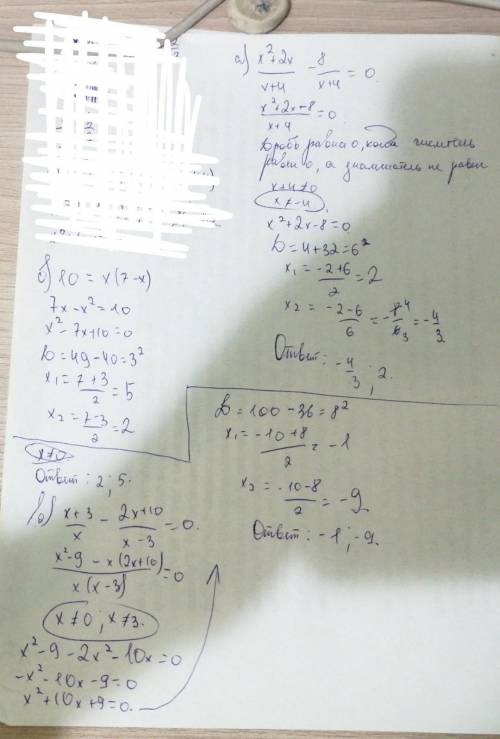 а) x²+2x/x+4 - 8/x+4 = 0.
x²+2x-8/x+4 = 0
Дробь равна 0, когда числитель
равен 0, а знаменатель не равен
x+4≠0
x≠-4
x²+2x-8=0
D=4+32=6²
x₁ = -2+6/2 = 2
x₂ = -2-6/6 = -8⁴/6₃ = -4/3
Ответ: -4/3; 2.
б) 10 = x(7-x)
7x-x²=10
x²-7x+10=0
D=49-40=3²
x₁=7+3/2=5
x₂=7-3/2=2
x≠0
Ответ: 2; 5.
в) x+3/x - 2x+10/x-3 = 0.
x²-9 - x(2x+10)/x(x-3) = 0
x≠0; x≠3.
x²-9-2x²-10x=0
-x²-10x-9=0
x²+10x+9=0.
D=100-36=8²
x₁=-10+8/2 = -1
x₂ = -10-8/2 = -9
Ответ: -1; -9.